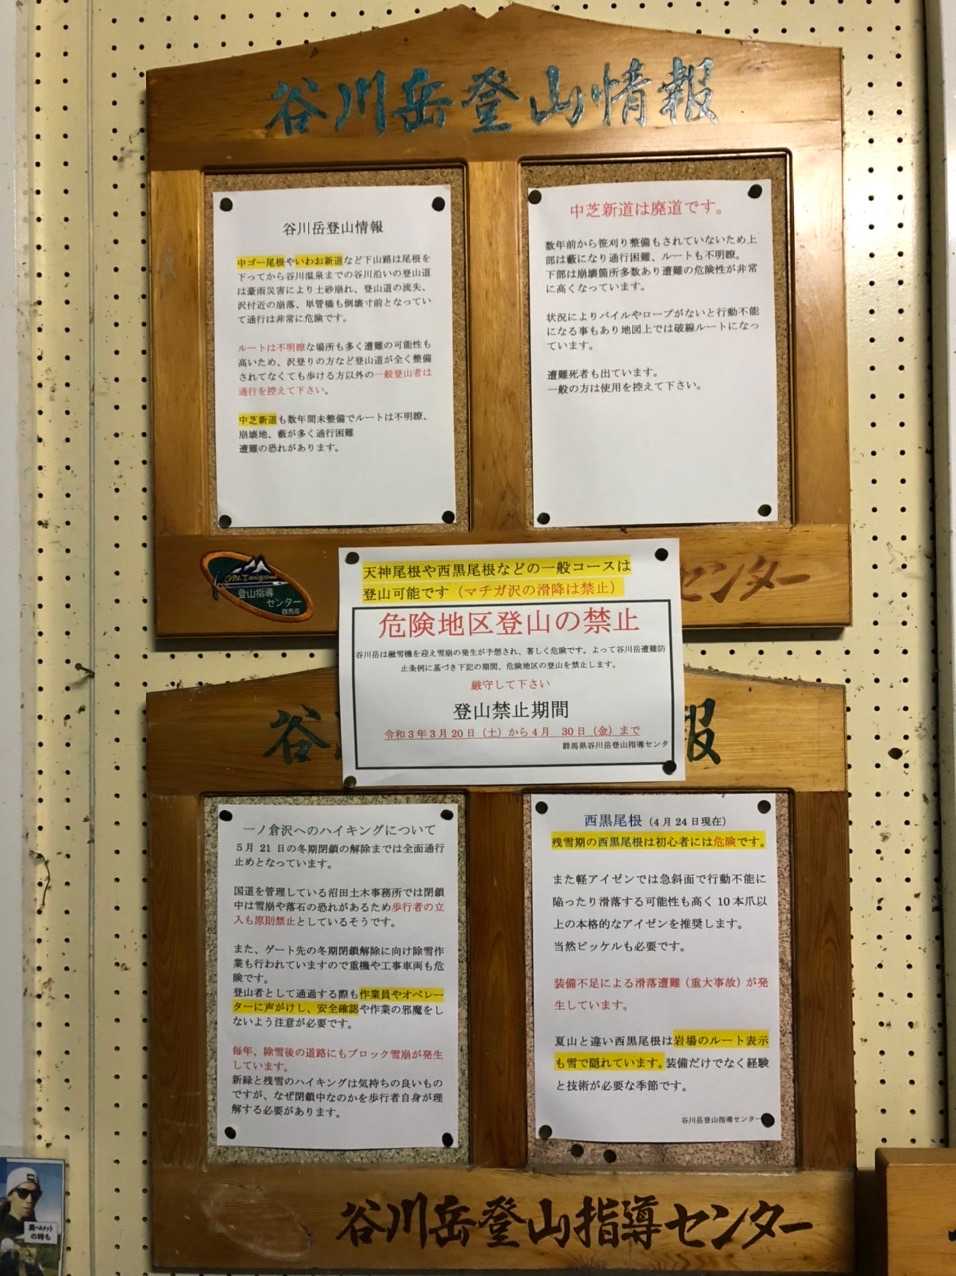 谷川岳登山情報
谷川岳登山情報
中ゴー尾根やいわお新道など下山路は尾根を
下ってから谷川温泉までの谷川沿いの登山道
は豪雨災害により土砂崩れ、登山道の流失、
沢付近の崩落、単管橋も倒壊寸前となってい
て通行は非常に危険です。
ルートは不明瞭な場所も多く遭難の可能性も
高いため、沢登りの方など登山道が全く整備
されてなくても歩ける方以外の一般登山者は
通行を控えて下さい。
中芝新道も数年間未整備でルートは不明瞭、
崩壊地、藪が多く通行困難
遭難の恐れがあります。
中芝新道は廃道です。
数年前から笹刈り整備もされていないため上
部は藪になり通行困難、ルートも不明瞭。
下部は崩壊箇所多数あり遭難の危険性が非常
に高くなっています。
状況によりパイルやロープがないと行動不能
になる事もあり地図上では破線ルートになっ
ています。
遭難死者も出ています。
一般の方は使用を控えて下さい。
Mt.Tanigawa
登山指導
センター
群馬県
センター
天神尾根や西黒尾根などの一般コースは
登山可能です（マチガ沢の滑降は禁止）
危険地区登山の禁止
谷川岳は融雪機を迎え雪崩の発生が予想され、著しく危険です。よって谷川岳遭難防
止条例に基づき下記の期間、危険地区の登山を禁止します。
厳守して下さい
登山禁止期間
令和3年3月20日（土）から4月 30日（金）まで
群馬県谷川岳登山指導センタ
谷
報
一ノ倉沢へのハイキングについて
5月 21 日の冬期閉鎖の解除までは全面通行
止めとなっています。
国道を管理している沼田土木事務所では閉鎖
中は雪崩や落石の恐れがあるため歩行者の立
入も原則禁止としているそうです。
また、ゲート先の冬期閉鎖解除に向け除雪作
業も行われていますので重機や工事車両も危
険です。
登山者として通過する際も作業員やオペレー
ターに声がけし、安全確認や作業の邪魔をし
ないよう注意が必要です。
毎年、除雪後の道路にもブロック雪崩が発生
しています。
新緑と残雪のハイキングは気持ちの良いもの
ですが、なぜ閉鎖中なのかを歩行者自身が理
解する必要があります。
西黒尾根（4月24日現在）
残雪期の西黒尾根は初心者には危険です。
また軽アイゼンでは急斜面で行動不能に
陥ったり滑落する可能性も高く 10 本爪以
上の本格的なアイゼンを推奨します。
当然ピッケルも必要です。
装備不足による滑落遭難（重大事故）が発
生しています。
夏山と違い西黒尾根は岩場のルート表示
も雪で隠れています。装備だけでなく経験
と技術が必要な季節です。
谷川岳登山指導センター
谷川岳登山指導センター
の時も